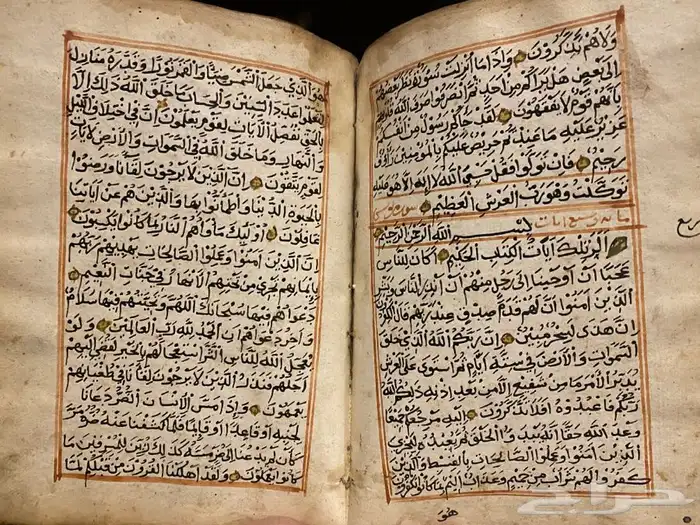 ولا هم يذكرون وإذا ما أنزلت سورة نظر بعضهم
إلى بعض هل يراكم من أحد ثم انصرفوا صرف الله قلوبهم
بأنهم قوم لا يفقهون لقد جاكم رسول من أنفسكم
عزيز عليه ما عنتم حريص عليكم بالمؤمنين رؤف
رحيم فإن تولوا فقل حسبي الله لا إله إلا هو عليه
توكلت وهو رب العرش العظيم سورة يونس
مائة وتسع آيات بسم الله الرحمن الرحيم
الر تلك آيات الكتاب الحكيم أكان للناس
عجبا أن أوحينا إلى رجل منهم أن أنذر الناس وبشر
الذين آمنوا أن لهم قدم صدق عند ربهم قال الكافرون
إن هذا لسحر مبين إن ربكم الله الذي خلق
السموات والأرض في ستة أيام ثم استوى على العرش
يدبر الأمر ما من شفيع إلا من بعد إذنه ذلكم الله
ربكم فاعبدوه أفلا تذكرون إليه مرجعكم جميعا
وعد الله حقا إنه يبدؤ الخلق ثم يعيده ليجزي
الذين آمنوا وعملوا الصالحات بالقسط والذين
كفروا لهم شراب من حميم وعذاب أليم بما كانوا يكفرون
هو
ربع
هو الذي جعل الشمس ضياء والقمر نورا وقدره منازل
لتعلموا عدد السنين والحساب ما خلق الله ذلك إلا
بالحق نفصل الآيات لقوم يعلمون إن في اختلاف الليل
والنهار وما خلق الله في السموات والأرض لآيات
لقوم يتقون إن الذين لا يرجون لقاءنا ورضوا
بالحيوة الدنيا واطمأنوا بها والذين هم عن آياتنا
غافلون أوليك مأواهم النار بما كانوا يكسبون
إن الذين آمنوا وعملوا الصالحات يهديهم ربهم
بإيمانهم تجري من تحتهم الأنهار في جنات النعيم
دعواهم فيها سبحانك اللهم وتحيتهم فيها سلام
وآخر دعواهم أن الحمد لله رب العالمين ولو
يعجل الله للناس الشر استعجالهم بالخير لقضي إليهم
أجلهم فنذر الذين لا يرجون لقاءنا في طغيانهم
يعمهون وإذا مس الإنسان الضر دعانا
لجنبه أو قاعدا أو قائما فلما كشفنا عنه ضره مر
كأن لم يدعنا إلى ضر مسه كذلك زين للمسرفين ما
كانوا يعملون ولقد أهلكنا القرون من قبلكم لما
حراج